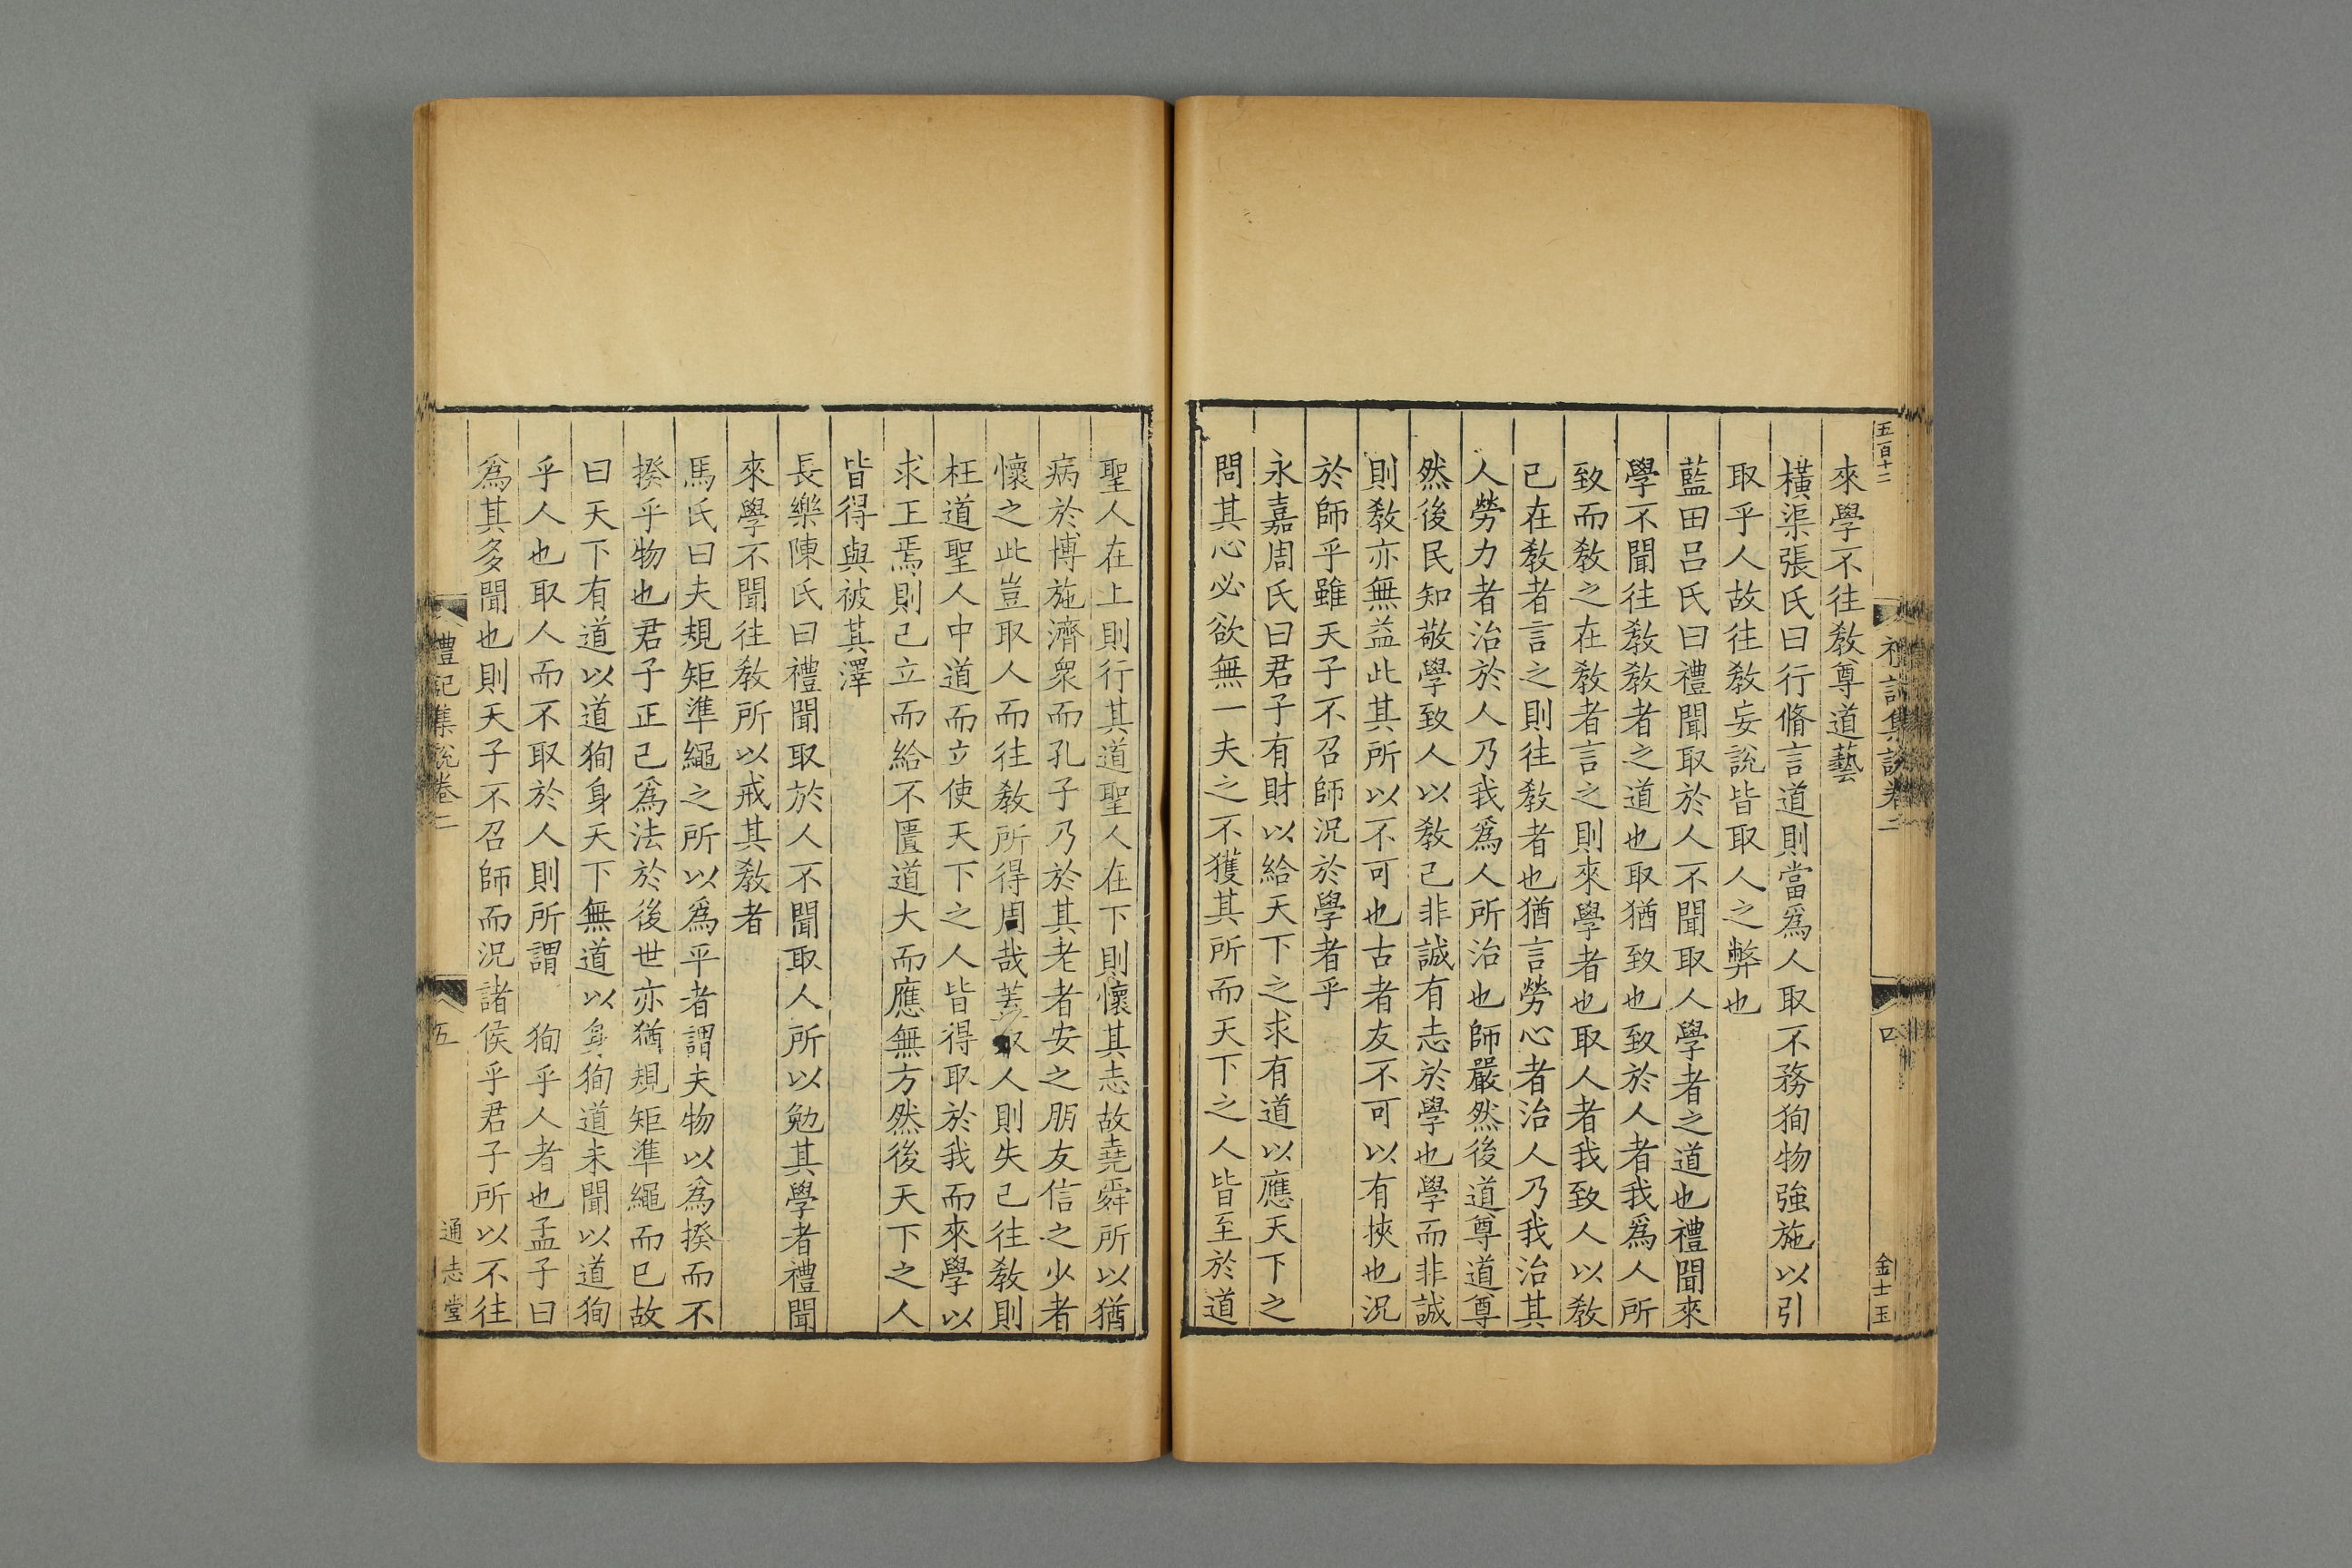 五百十二
禮記集說卷二
四
金士玉
來學不往敎尊道藝
橫渠張氏曰行脩言道則當爲人取不務狥物強施以引
取乎人故往敎妄說皆取人之弊也
藍田呂氏曰禮聞取於人不聞取人學者之道也禮聞來
學不聞往敎敎者之道也取猶致也致於人者我爲人所
致而敎之在敎者言之則來學者也取人者我致人以敎
己在敎者言之則往敎者也猶言勞心者治人乃我治其
人勞力者治於人乃我爲人所治也師嚴然後道尊道尊
然後民知敬學致人以敎己非誠有志於學也學而非誠
則敎亦無益此其所以不可也古者友不可以有挾也況
於師乎雖天子不召師況於學者乎
永嘉周氏曰君子有財以給天下之求有道以應天下之
問其心必欲無一夫之不獲其所而天下之人皆至於道
聖人在上則行其道聖人在下則懷其志故堯舜所以猶
病於博施濟衆而孔子乃於其老者安之朋友信之少者
懷之此豈取人而往敎所得周哉蓋取人則失己往敎則
枉道聖人中道而立使天下之人皆得取於我而來學以
求正焉則己立而給不匱道大而應無方然後天下之人
皆得與被其澤
長樂陳氏曰禮聞取於人不聞取人所以勉其學者禮聞
來學不聞往敎所以戒其敎者
馬氏曰夫規矩準繩之所以爲平者謂夫物以爲揆而不
揆乎物也君子正己爲法於後世亦猶規矩準繩而已故
曰天下有道以道狥身天下無道以身狥道未聞以道狥
乎人也取人而不取於人則所謂 狥乎人者也孟子曰
爲其多聞也則天子不召師而況諸侯乎君子所以不往
禮記集說卷二
五
通志堂